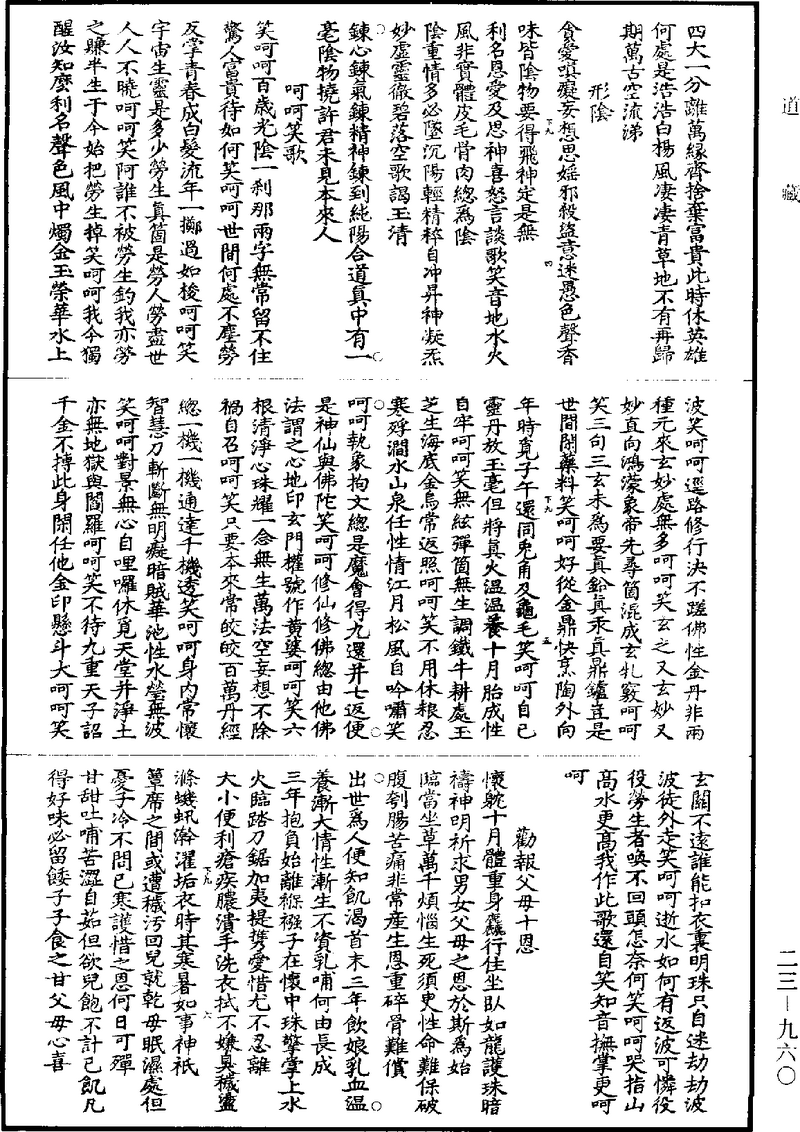 道藏
四大一分離萬緣齊捨棄富貴此時休英雄
何處是浩浩白楊風凄凄青草地不有再歸
期萬古空流涕
形陰
貪愛嗔癡妄想思婬邪殺盜意迷愚色聲香
味皆陰物要得飛神定是無
利名恩愛及思神喜怒言談歌笑音地水火
風非實體皮毛骨肉總為陰
陰重情多必墜沉陽輕精粹自沖昇神凝炁
妙虛靈徹碧落空歌謁玉清
鍊心鍊氣鍊精神鍊到純陽合道真中有一
毫陰物撓許君未見本來人
呵呵笑歌
笑呵呵百歲光陰一刹那兩字無常留不住
驚人富貴待如何笑呵呵世間何處不塵勞
反掌青春成白髮流年一擲過如梭呵呵笑
宇宙生靈是多少勞生真箇是勞人勞盡世
人人不曉呵呵笑阿誰不被勞生釣我亦勞
之賺半生于今始把勞生掉笑呵呵我今獨
醒汝知麼利名聲色風中燭金玉榮華水上
波笑呵呵逕路修行決不蹉佛性金丹非兩
種元來玄妙處無多呵呵笑玄之又玄妙又
妙直向鴻濛象帝先尋箇混成玄牝竅呵呵
笑三句三玄未為要真鉛真汞真鼎鑪豈是
世間閑藥料笑呵呵好從金鼎快烹陶外向
年時覓子午還同兎角及龜毛笑呵呵自己
靈丹放玉毫但將真火溫溫養十月胎成性
自牢呵呵笑無絃彈箇無生調鐵牛耕處玉
芝生海底金烏常返照呵呵笑不用休粮忍
寒殍澗水山泉任性情江月松風自吟嘯笑
呵呵執象拘文總是魔會得九還并七返便
是神仙與佛陀笑呵呵修仙修佛總由他佛
法謂之心地印玄門權號作黃婆呵呵笑六
根清淨心珠耀一念無生萬法空妄想不除
禍自召呵呵笑只要本來常皎皎百萬丹經
總一機一機通達千機透笑呵呵身內常懷
智慧刀斬斷無明癡暗賊華池性水瑩無波
笑呵呵對景無心自哩囉休覓天堂并淨土
亦無地獄與閻羅呵呵笑不待九重天子詔
千金不摶此身閑任他金印懸斗大呵呵笑
玄關不遠誰能扣衣裏明珠只自迷劫劫波
波徒外走笑呵呵逝水如何有返波可憐役
役勞生者喚不回頭怎奈何笑呵呵哭指山
高水更高我作此歌還自笑知音撫掌更呵
呵
勸報父母十恩
懷躭十月體重身麤行住坐臥如龍護珠暗
禱神明祈求男女父母之恩於斯為始
臨當坐草萬千煩惱生死須臾性命難保破
腹刳腸苦痛非常産生恩重碎骨難償
出世為人便知飢渴首末三年飲娘乳血溫
養漸大情性漸生不資乳哺何由長成
三年抱負始離褓襁子在懷中珠擎掌上水
火臨踏刀鋸加夷提携愛惜尤不忍離
大小便利瘡疾膿潰手洗衣拭不嫌臭穢盪
滌蟣虱澣濯垢衣時其寒暑如事神祇
簟席之間或遭穢污回兒就乾母眠濕處但
憂子冷不問己寒護惜之恩何日可殫
甘甜吐哺苦澀自茹但欲兒飽不計己飢凡
得好味必留餧子子食之甘父母心喜
二三—九六〇